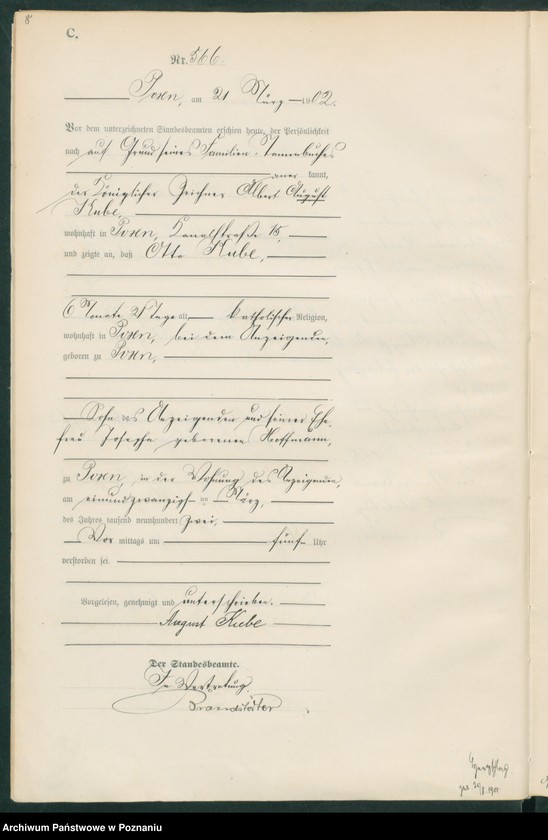 8
C.
Nr. 566.
Posen, am 21 März 1902.
Vor dem unterzeichneten Standesbeamten erschien heute, der Persönlichkeit
nach auf Grund seines Familien-Stammbuches
anerkannt,
der Königliche Zeichner Albert August
Kube,
wohnhaft in Posen, Kanalstraße 15,
und zeigte an, daß Otto Kube,
6 Monate 21 Tage alt, katholischer Religion,
wohnhaft in Posen, bei dem Anzeigenden,
geboren zu Posen,
Sohn des Anzeigenden und seiner Ehe-
frau Josepha geborenen Hoffmann,
zu Posen, in der Wohnung des Anzeigenden,
am einundzwanzigsten März,
des Jahres tausend neunhundert zwei,
Vor mittags um fünf Uhr
verstorben sei.
Vorgelesen, genehmigt und unterschrieben.
August Kube
Der Standesbeamte.
In Vertretung.
Brandstädter
Archiwum Państwowe w Poznaniu